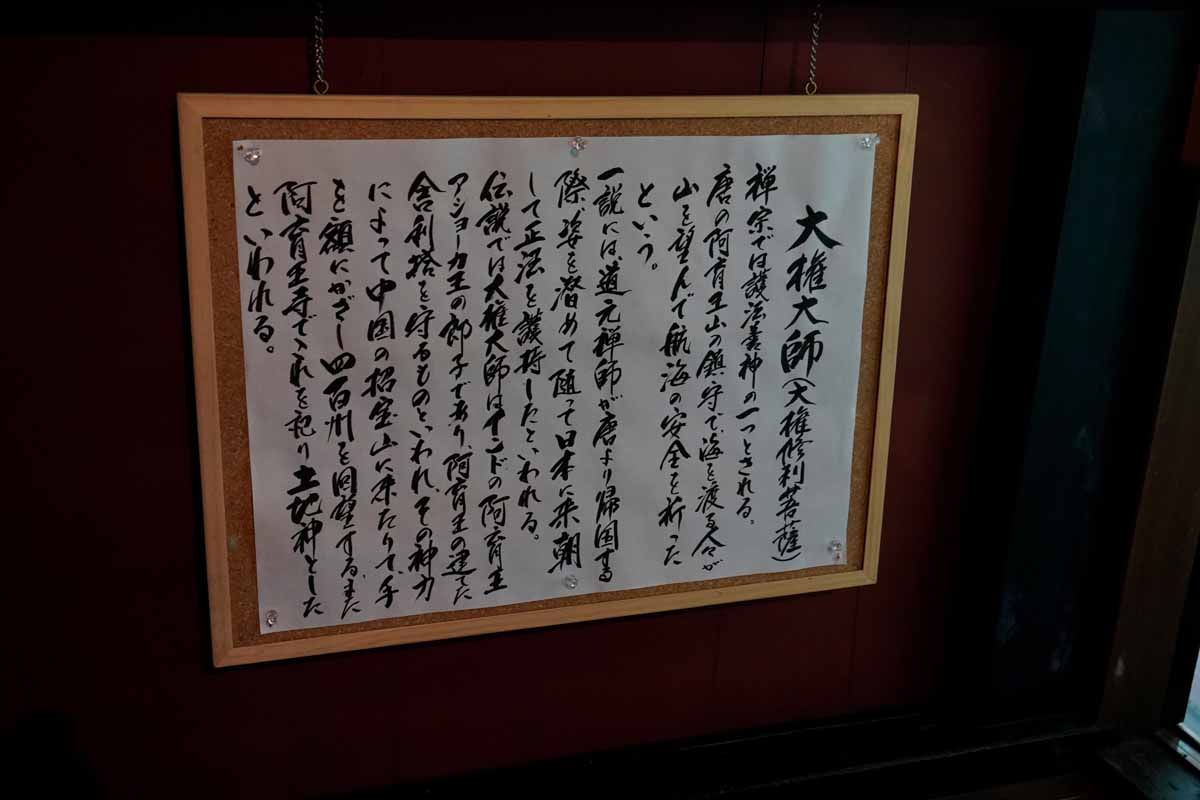 大権大師(大権修利菩薩)
禅宗では護法善神の一つとされる。
唐の阿育王山の鎮守で、海を渡る人々が
山を望んで航海の安全を祈った
という。
一説には、道元禅師が唐より帰国する
際、姿を潜めて随って日本に来朝
して正法を護持したといわれる。
伝説では大権大師はインドの阿育王
アショーカ王の郎子であり、阿育王の建てた
舎利塔を守るものといわれ、その神力
によって中国の招宝山に来たりて、手
を額にかざし四百州を回望する。また
阿育王寺でこれを祀り土地神とした
といわれる。